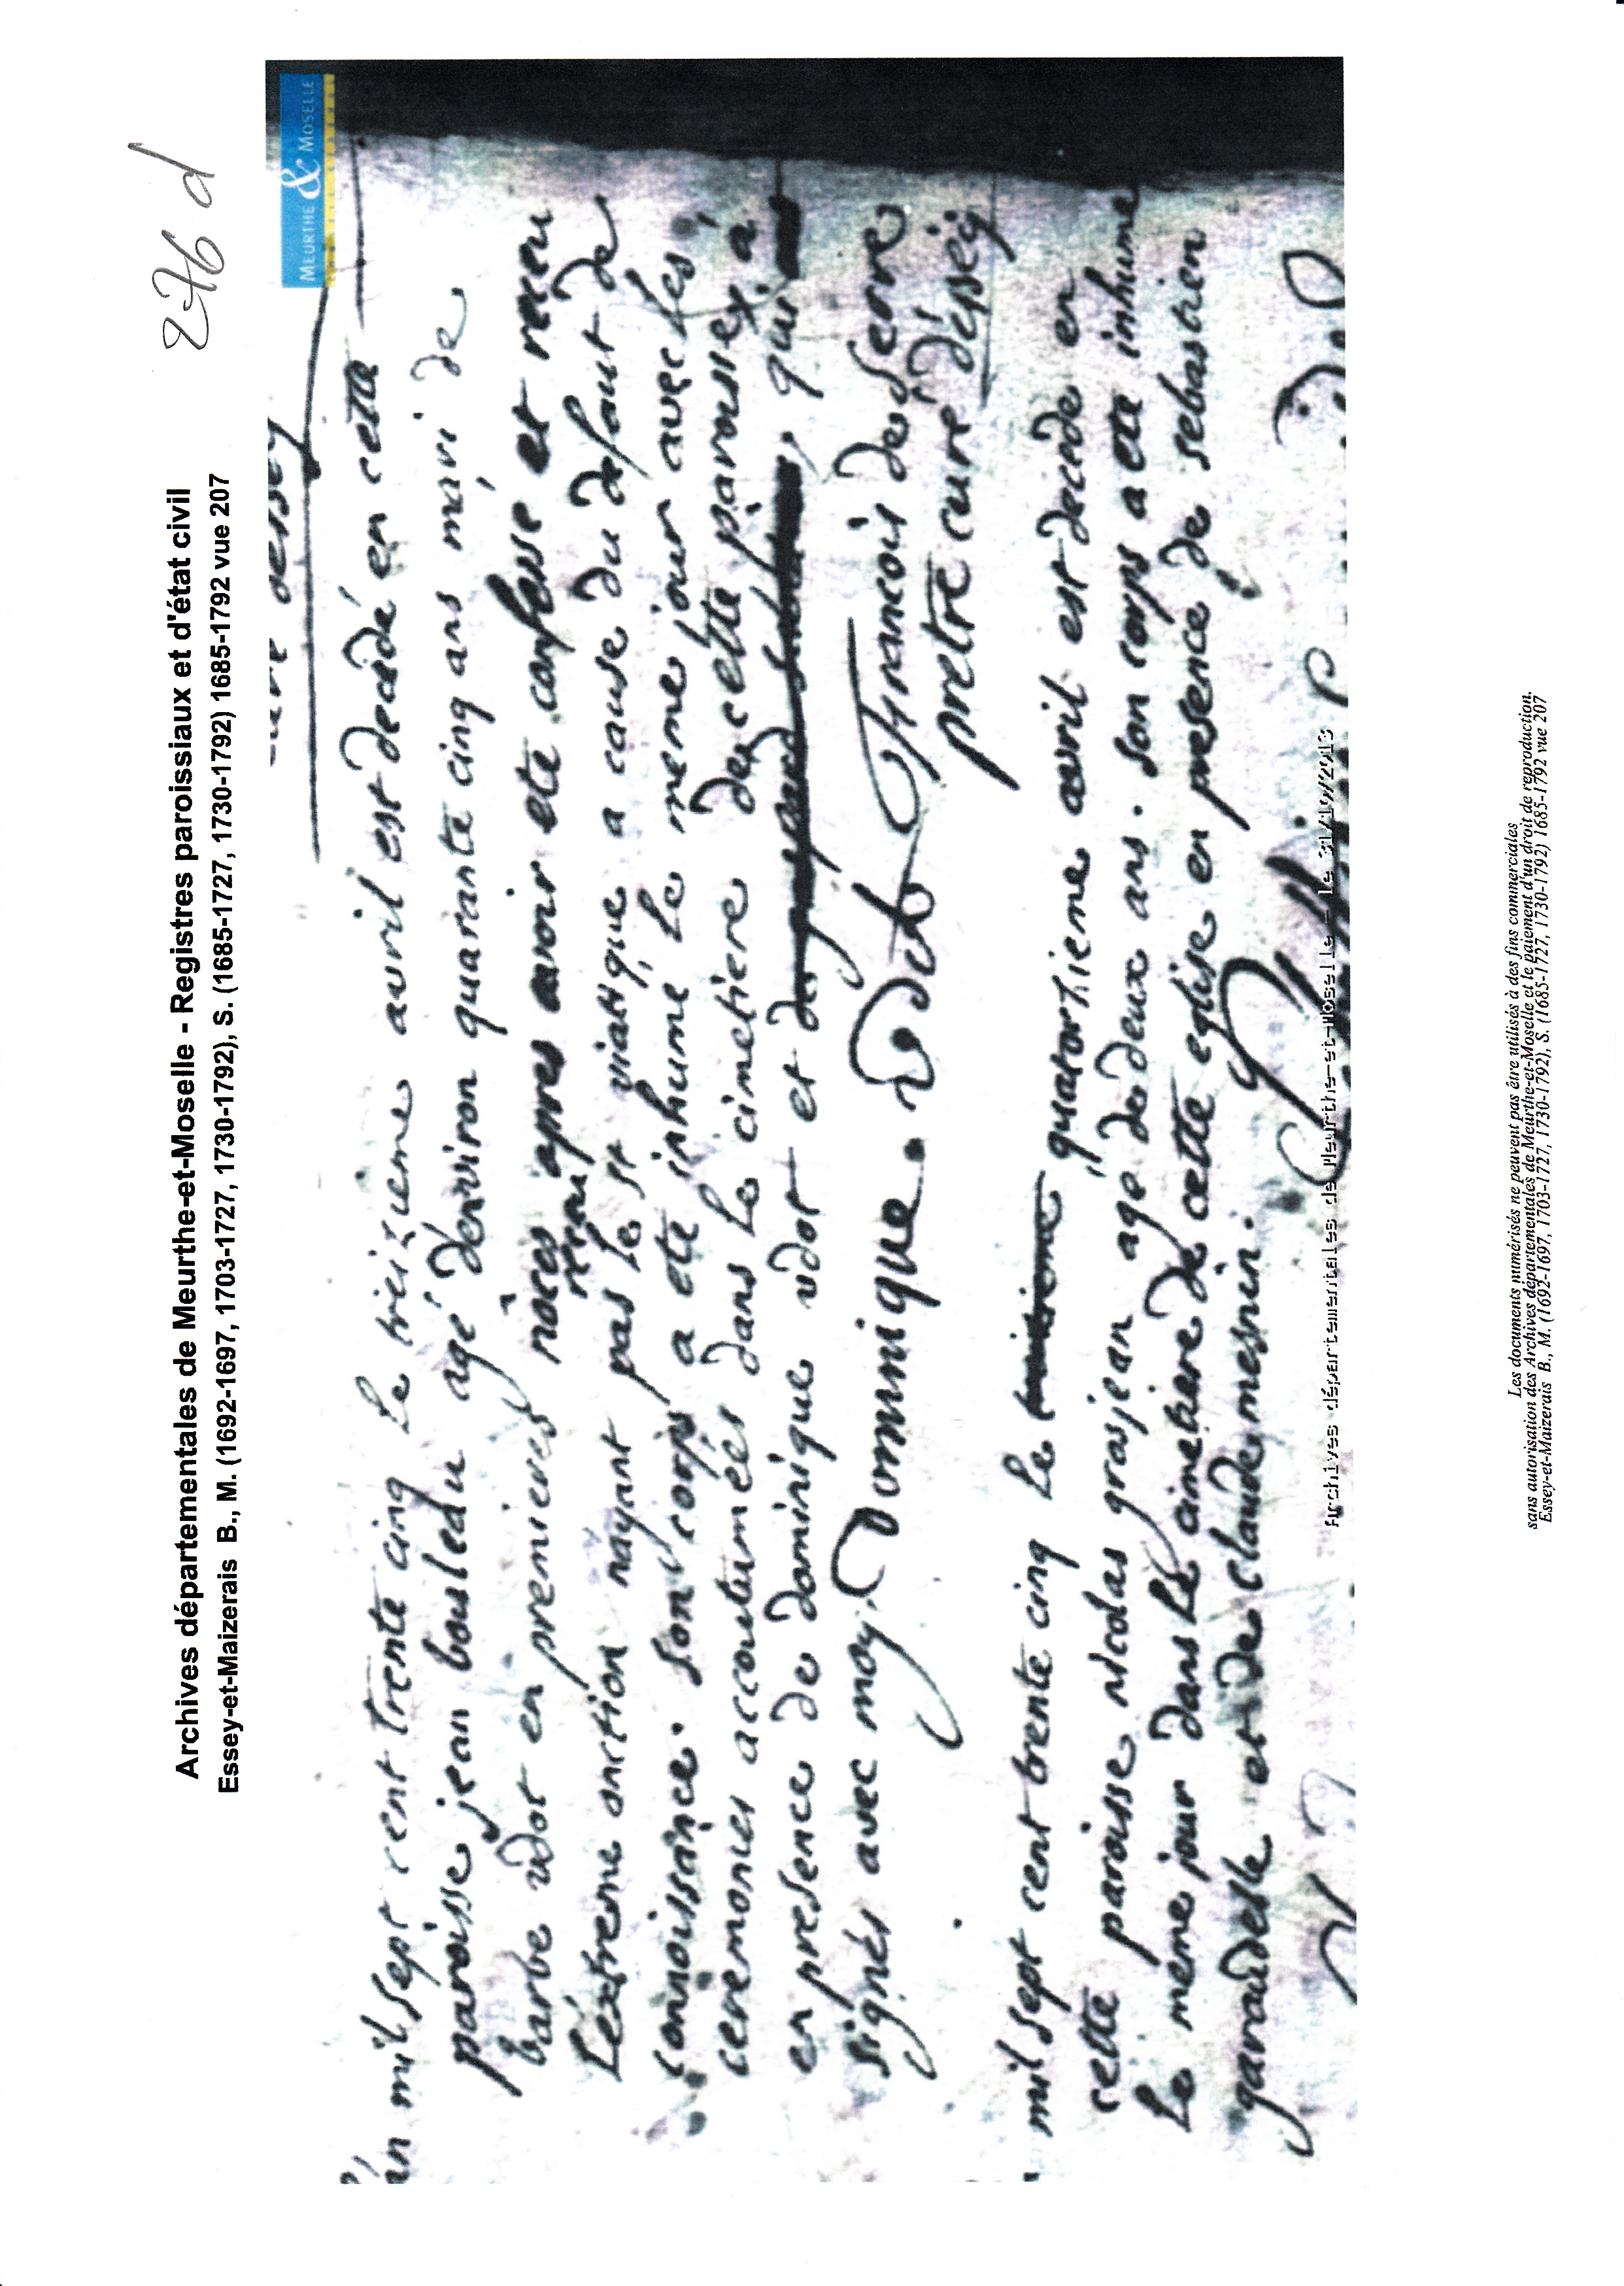 276 d
Archives départementales de Meurthe-et-Moselle - Registres paroissiaux et d'état civil
Essey-et-Maizerais B., M. (1692-1697, 1703-1727, 1730-1792), S. (1685-1727, 1730-1792) 1685-1792 vue 207
MEURTHE & MOSELLE
curé dessey
l'an mil sept cent trente cinq le treizieme avril est decedé en cette
paroisse jean bousledu agé denviron quarante cinq ans mari de
barbe vdot en premieres nôces apres avoir eté confesse et receu
L'extreme onction nayant receu pas le st viatique a cause du defaut de
connoissance. Son corps a eté inhumé le meme jour avec les
ceremonies accoutumées dans le cimetiere de cette paroisse, a
en presence de dominique vdot et de qui
signés avec moy.
Dominique Vdot François de serre
pretre curé desseÿ
mil sept cent trente cinq le quatortieme avril est decede en
cette paroisse nicolas grosjean age de deux ans. son corps a ete inhume
le même jour dans le cimetiere de cette eglise en presence de sebastien
garaudelle et de claude mesnin.
Archives départementales de Meurthe-et-Moselle - le 31/10/2013
Les documents numérisés ne peuvent pas être utilisés à des fins commerciales
sans autorisation des Archives départementales de Meurthe-et-Moselle et le paiement d'un droit de reproduction.
Essey-et-Maizerais B., M. (1692-1697, 1703-1727, 1730-1792), S. (1685-1727, 1730-1792) 1685-1792 vue 207